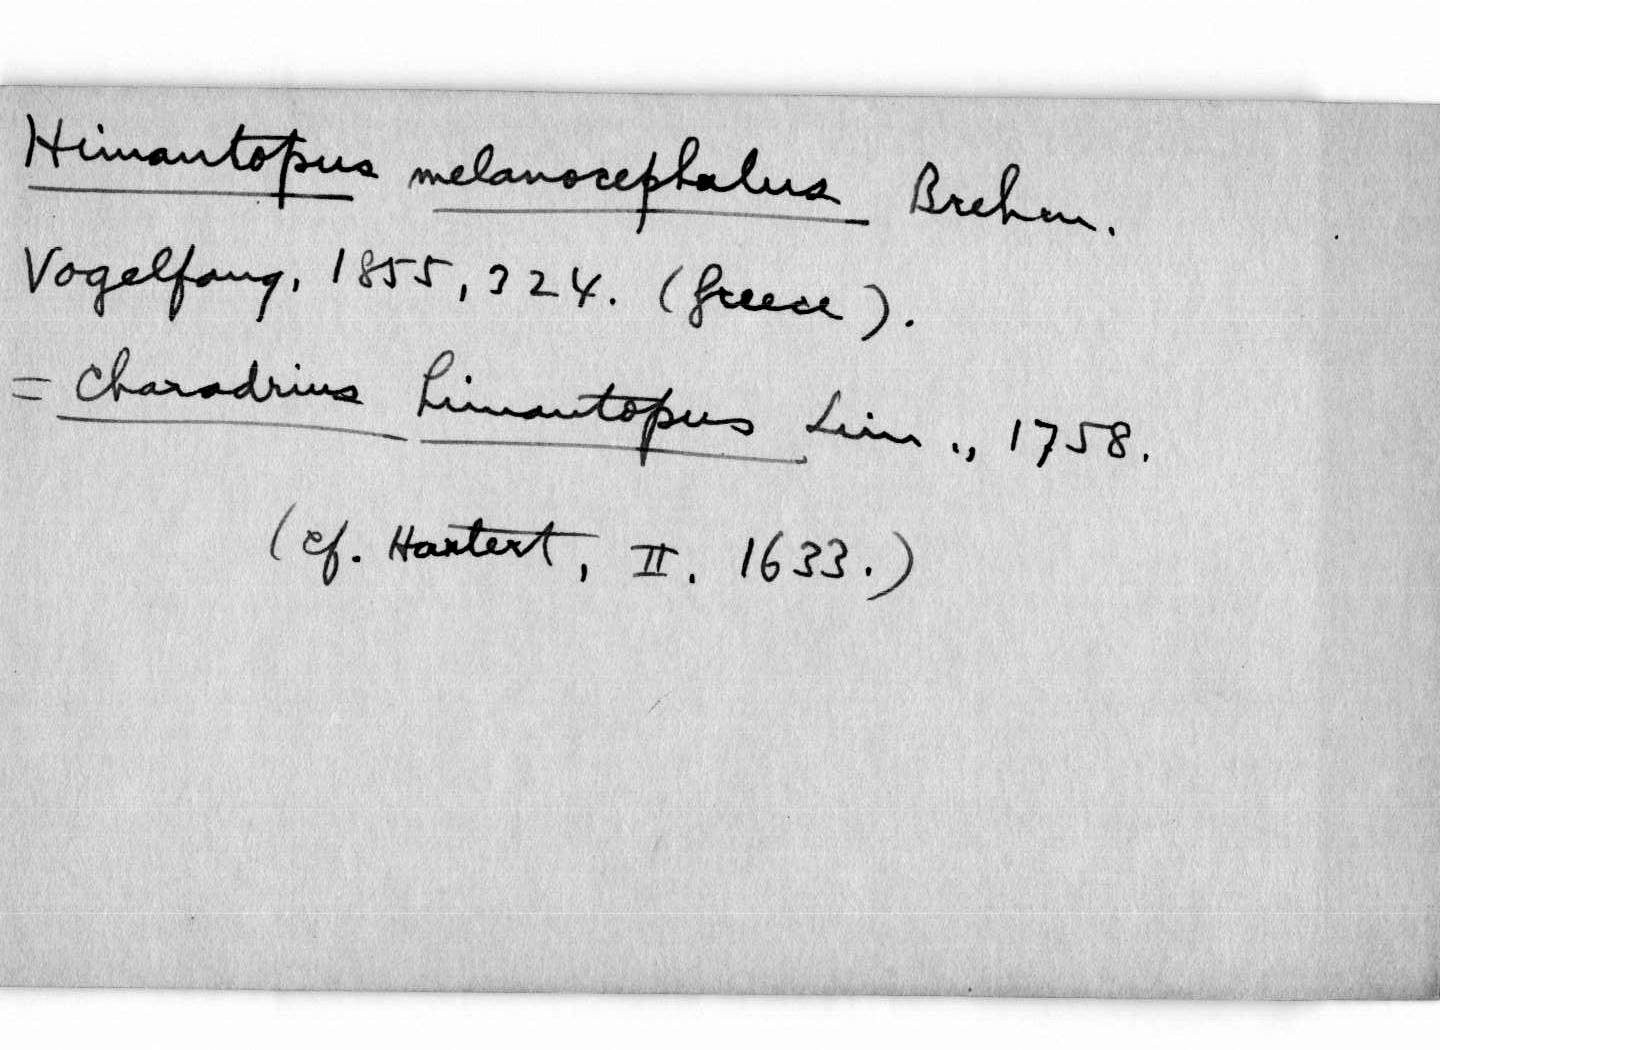 Himantopus melanocephalus Brehm.
Vogelfang, 1855, 324. (Greece).
= Charadrius himantopus Linn., 1758.
(cf. Hartert, II. 1633.)